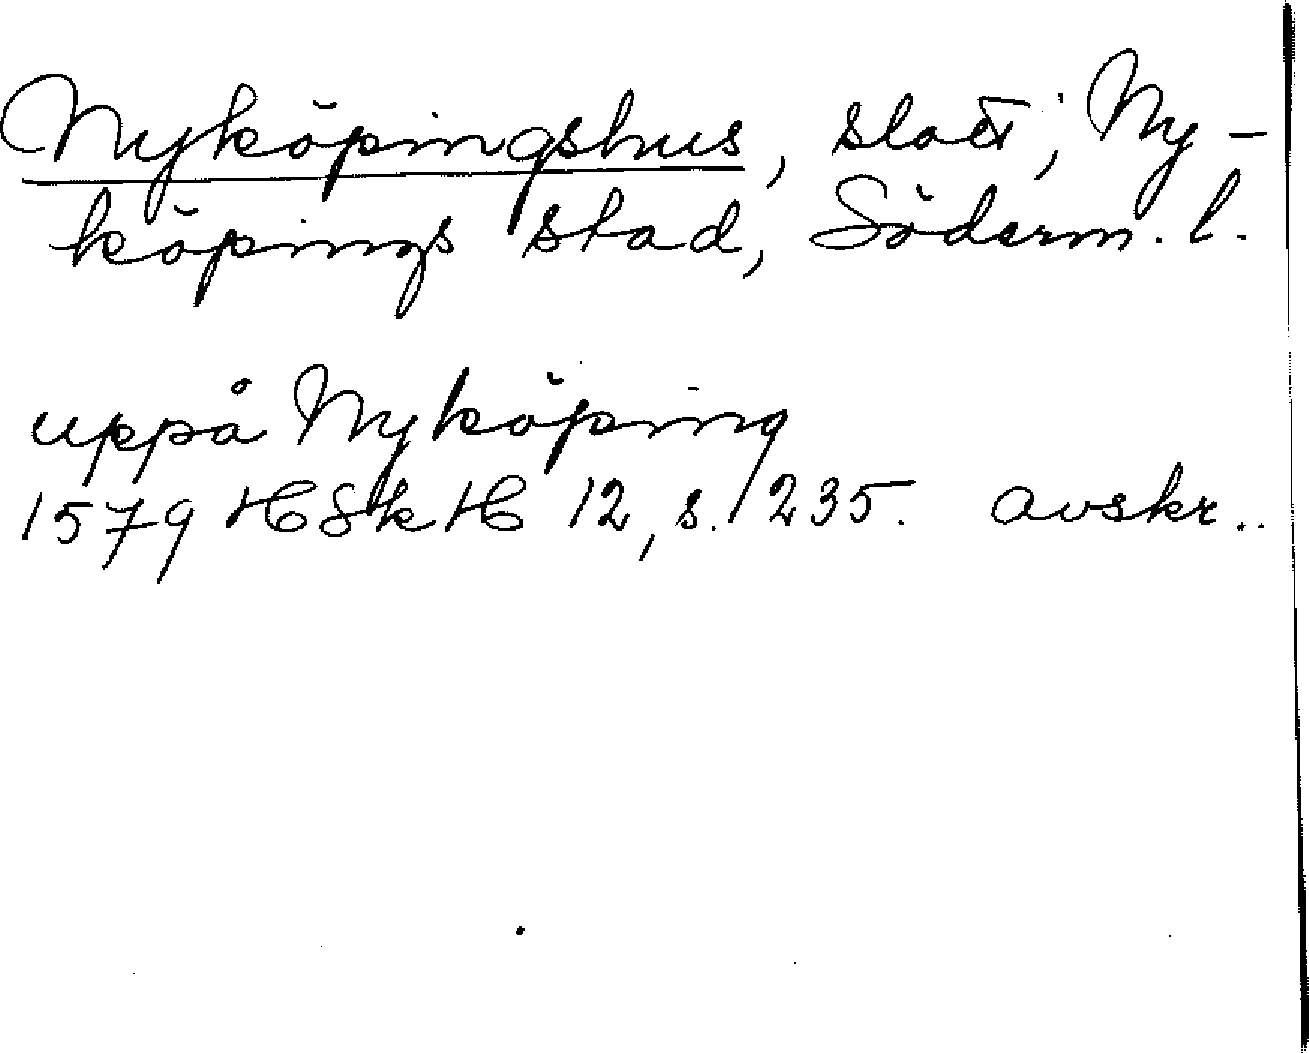 Nyköpingshus, slott, Ny-
köpings stad, Söderm. l.
uppå Nyköping
1579 HSkH 12, s. 235. avskr..